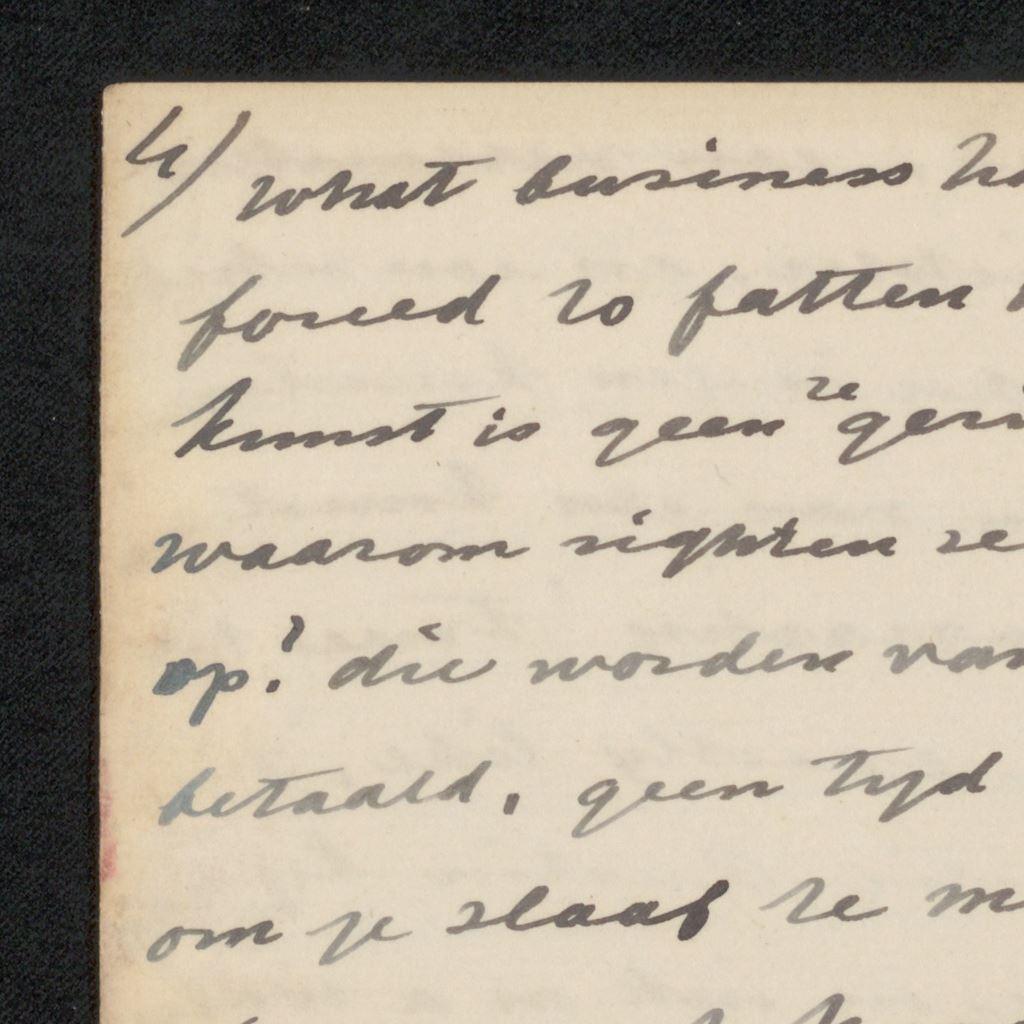 4) what business
forced to fatten
kunst is geen ze
waarom righten ze
op? die worden van
betaald, geen tijd
om je slaaf te